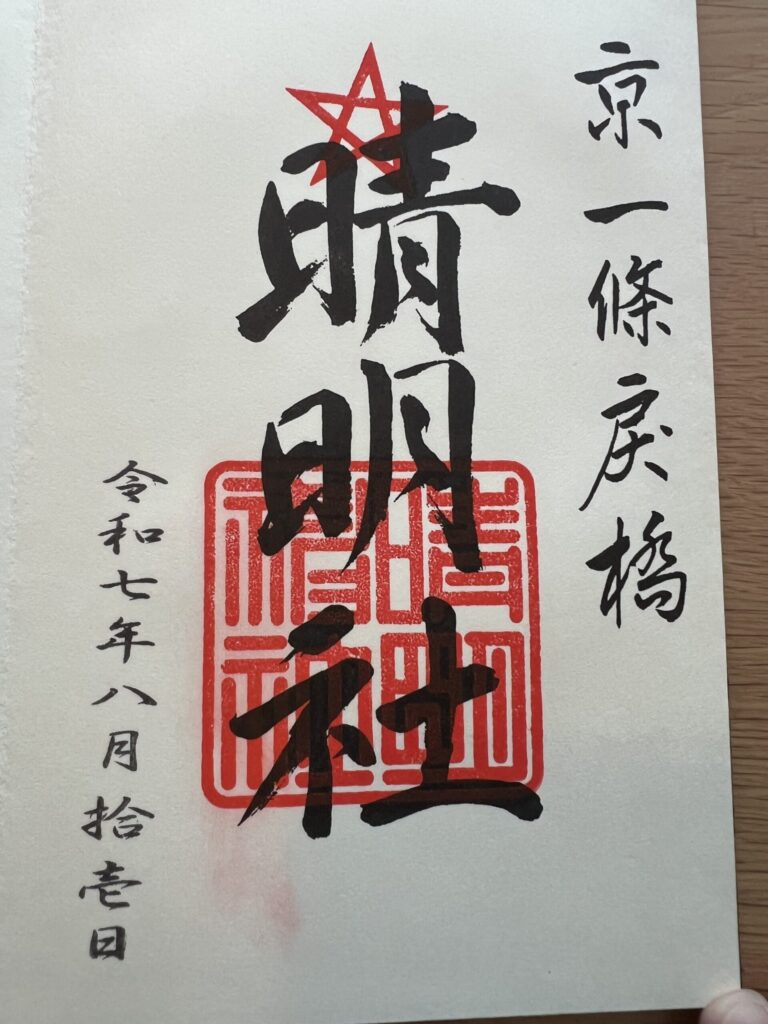 京一條戻橋
晴明社
晴明
令和七年八月拾壱日